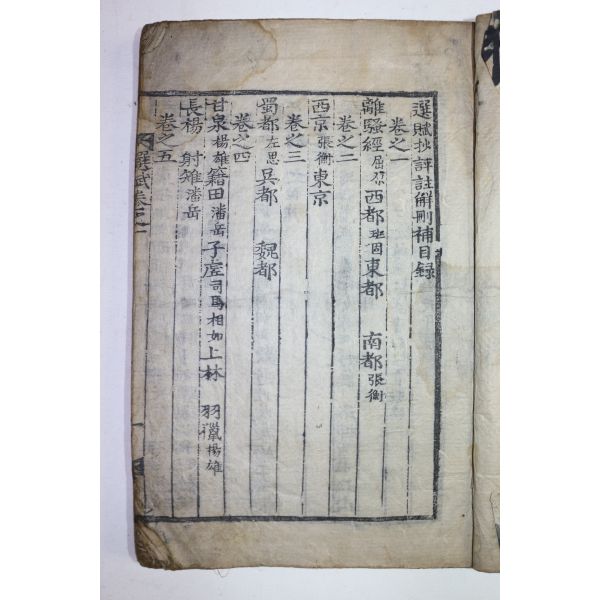 選賦抄評註解刪補目録
卷之一
離騷經屈原 西都班固 東都 南都張衡
卷之二
西京張衡 東京
卷之三
蜀都左思 吳都 魏都
卷之四
甘泉楊雄 籍田潘岳 子虛司馬相如 上林 羽獵揚雄
長楊 射雉潘岳
卷之五
選賦卷之一